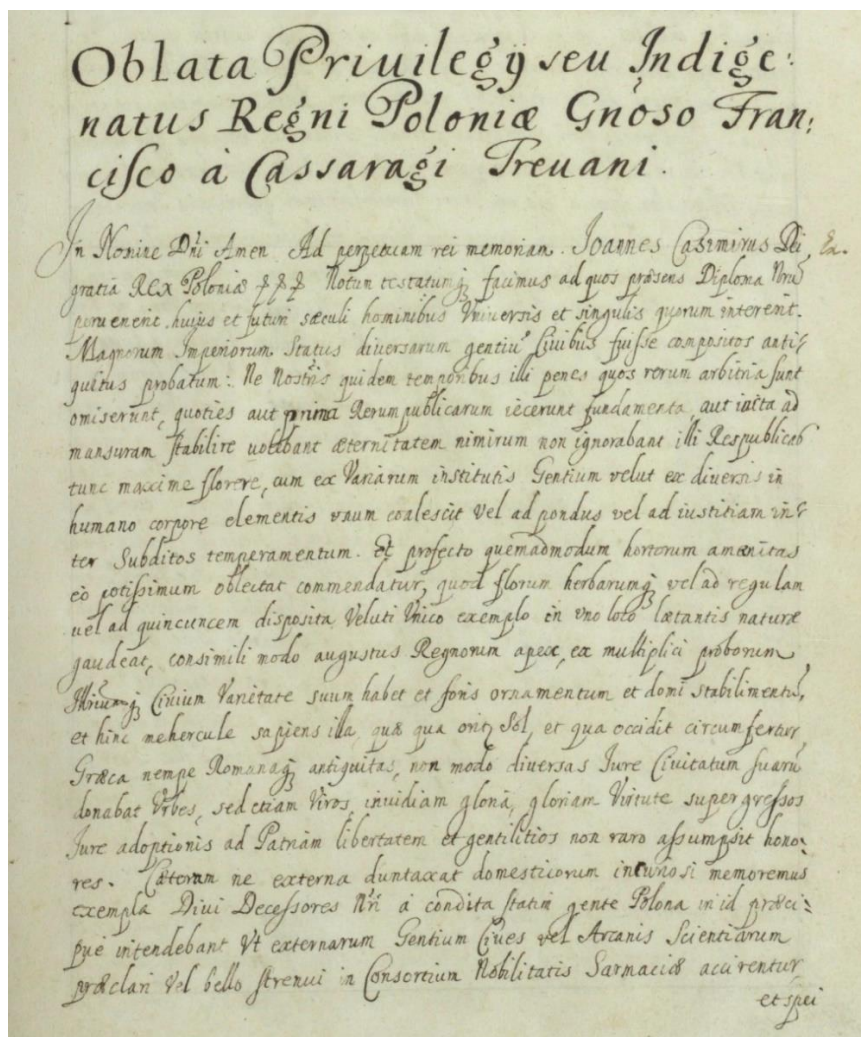 Oblata Priuilegÿ seu Indige:
natus Regni Poloniæ Gnoso Fran:
cisco à Cassaragi Treuani.
In Nomine Dni Amen Ad perpetuam rei memoriam. Joannes Casimirus Dei Ex.
gratia Rex Poloniæ Notum testatumq facimus ad quos præsens Diploma Nrum
peruenerit hujus et futuri sæculi hominibus Vniuersis et singulis quorum intererit.
Magnorum Imperiorum Status diuersarum gentiu Ciuibus fuisse compositos anti:
quitus probatum: Ne Nostris quidem temporibus illi penes quos rerum arbitria sunt
omiserunt, quoties aut prima Rerumpublicarum iecerunt fundamenta, aut iacta ad
mansuram stabilire uolebant æternitatem nimirum non ignorabant illi Respublicas
tunc maxime florere, cum ex Variarum institutis Gentium velut ex diuersis in
humano corpore elementis vnum coalescit Vel ad pondus vel ad iustitiam in:
ter Subditos temperamentum. Et profecto quemadmodum hortorum amænitas
eò potissimum oblectat commendatur, quod florum herbarumq vel ad regulam
uel ad quincuncem disposita Veluti Vnico exemplo in vno loco lætantis naturæ
gaudeat, consimili modo augustus Regnorum apex, ex multiplici proborum
Illriumq Ciuium Varietate suum habet et foris ornamentum et domi stabilimentu,
et hinc mehercule sapiens illa, quæ qua orit Sol, et qua occidit circumfertur
Græca nempe Romanaq antiquitas, non modo diuersas Jure Ciuitatum suaru
donabat Vrbes, sed etiam Viros, inuidiam gloriâ, gloriam Virtute supergressos
Jure adoptionis ad Patriam libertatem et gentilitios non raro assumpsit hono:
res. Cæterum ne externa duntaxat domesticorum incuriosi memoremus
exempla Diui Decessores Nri à condita statim gente Polona in id præci:
puè intendebant Vt externarum Gentium Ciues vel Arcanis Scientiarum
præclari Vel bello strenui in Consortium Nobilitatis Sarmaciæ accirentur,
et spei